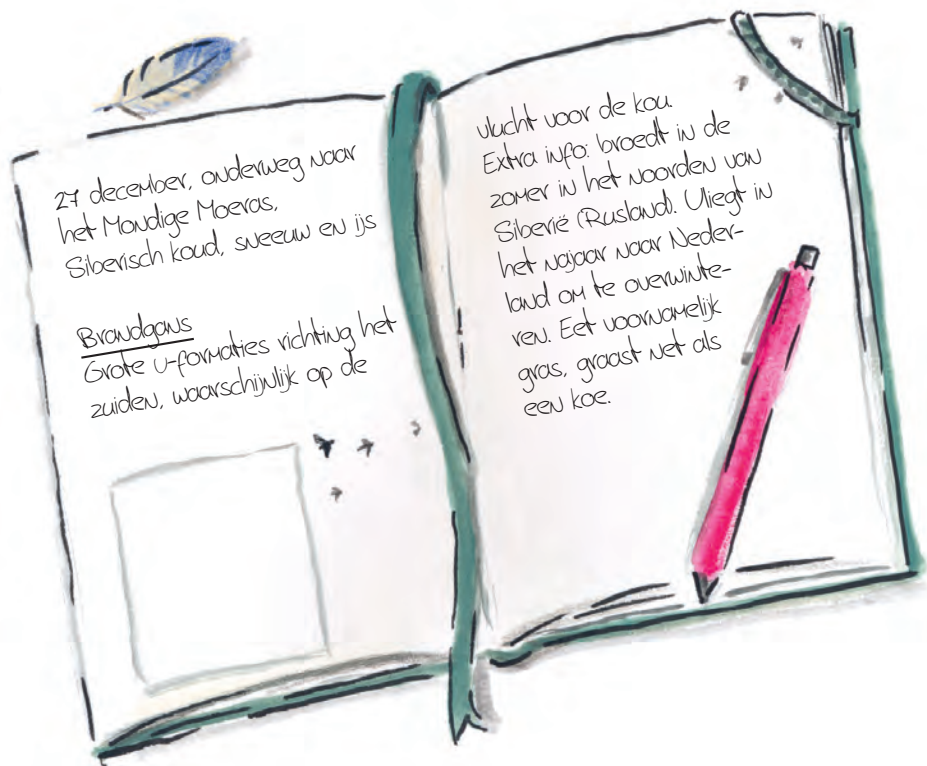 27 december, onderweg naar
het Mondige Moeras,
Siberisch koud, sneeuw en ijs
Brandgans
Grote U-formaties richting het
zuiden, waarschijnlijk op de
vlucht voor de kou.
Extra info: broedt in de
zomer in het noorden van
Siberië (Rusland). Vliegt in
het najaar naar Neder-
land om te overwinte-
ren. Eet voornamelijk
gras, graast net als
een koe.